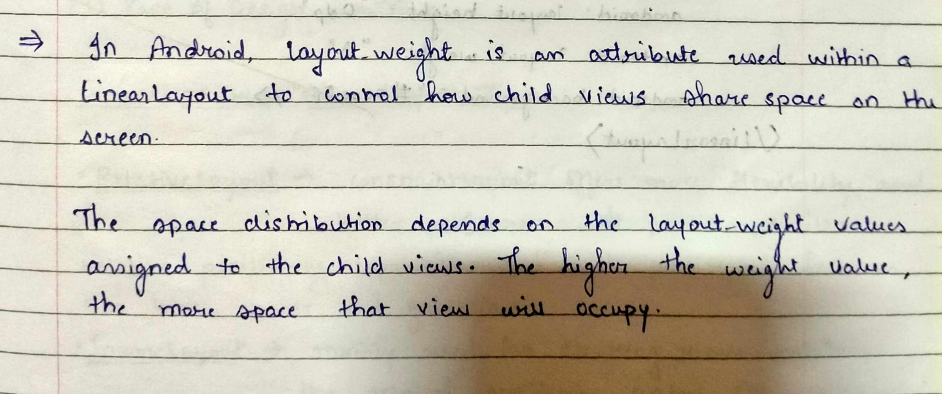 ⇒ In Android, layout-weight is an attribute used within a
LinearLayout to control how child views share space on the
screen.
The space distribution depends on the layout-weight values
assigned to the child views. The higher the weight value,
the more space that view will occupy.